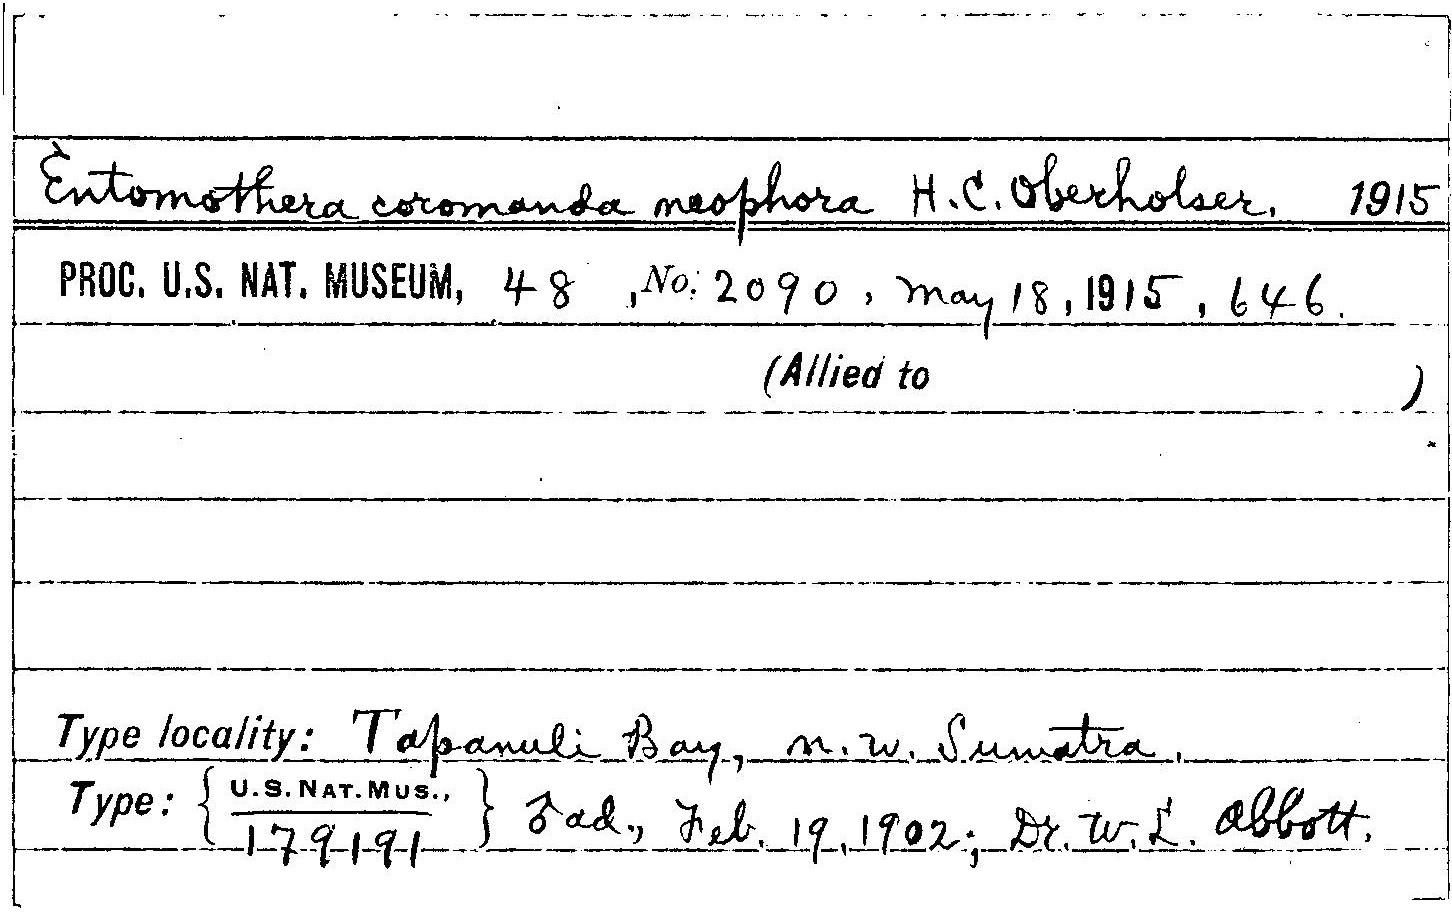 Entomothera coromanda neophora H.C. Oberholser. 1915
PROC. U.S. NAT. MUSEUM, 48, No. 2090, May 18, 1915, 646.
(Allied to )
Type locality: Tapanuli Bay, n.w. Sumatra.
Type: { U.S. NAT. MUS., 179191 } ad., Feb. 19, 1902; Dr. W. L. Abbott.